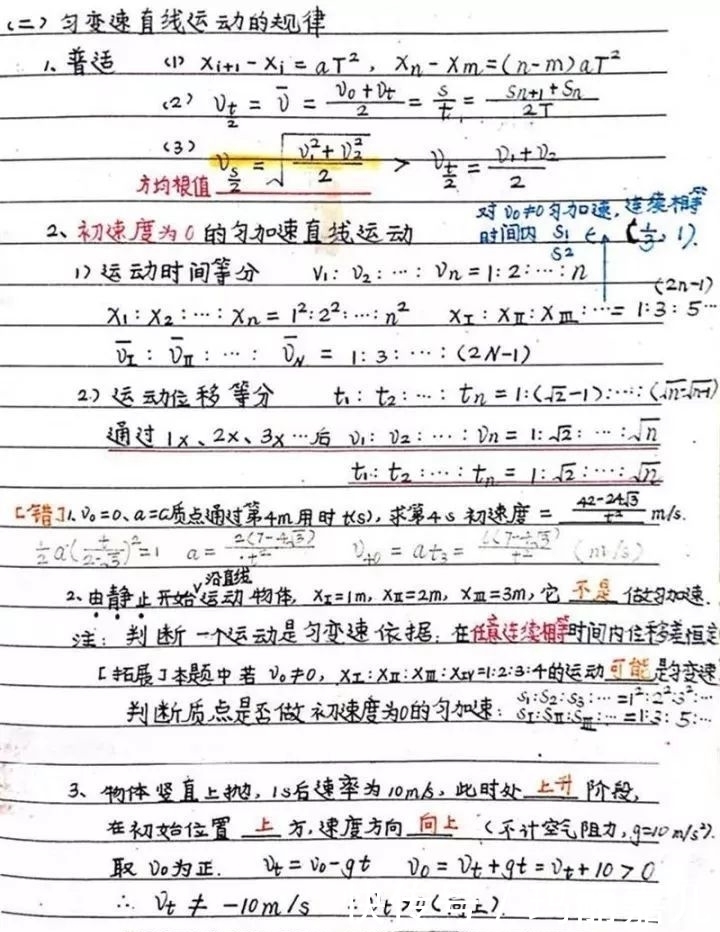 (二) 匀变速直线运动的规律
1、普适 (1) x_{i+1} - x_i = aT², x_n - x_m = (n-m)aT²
(2) v_{t/2} = v̄ = (v₀+v_t)/2 = s/t = (s_{n+1}+s_n)/2T
(3) v_{s/2} = √((v₁²+v₂²)/2) > v_{t/2} = (v₁+v₂)/2
方均根值
对v₀≠0匀加速,连续相等
时间内 s₁/s₂ ∈ (1/3, 1).
2、初速度为0的匀加速直线运动
1) 运动时间等分 v₁:v₂:…:v_n = 1:2:…:n
(2n-1)
x₁:x₂:…:x_n = 1²:2²:…:n² x_Ⅰ:x_Ⅱ:x_Ⅲ:… = 1:3:5…
v̄_Ⅰ:v̄_Ⅱ:…:v̄_N = 1:3:…:(2N-1)
2) 运动位移等分 t₁:t₂:…:t_n = 1:(√2-1):…:(√n-√(n-1))
通过1x、2x、3x…后 v₁:v₂:…:v_n = 1:√2:…:√n
t₁:t₂:…:t_n = 1:√2:…:√n
[错]1. v₀=0、a=C质点通过第4m用时t(s), 求第4s初速度 = (42-24√3)/t² m/s.
½a(t/(2-√3))²=1 a = 2(7-4√3)/t² = at₃ = (m/s)
2、由静止开始沿直线运动物体, x_Ⅰ=1m, x_Ⅱ=2m, x_Ⅲ=3m, 它 不是 做匀加速.
注: 判断一个运动是匀变速依据: 在任意连续相等时间内位移差恒定
[拓展]本题中若 v₀≠0, x_Ⅰ:x_Ⅱ:x_Ⅲ:x_Ⅳ=1:2:3:4的运动可能是匀变速
判断质点是否做初速度为0的匀加速: s₁:s₂:s₃:…=1²:2²:3²:…
s_Ⅰ:s_Ⅱ:s_Ⅲ:…=1:3:5:…
3、物体竖直上抛, 1s后速率为10m/s, 此时处 上升 阶段,
在初始位置 上 方, 速度方向 向上 (不计空气阻力, g=10m/s²).
取v₀为正. v_t = v₀-gt v₀ = v_t+gt = v_t+10 > 0
∴ v_t ≠ -10m/s